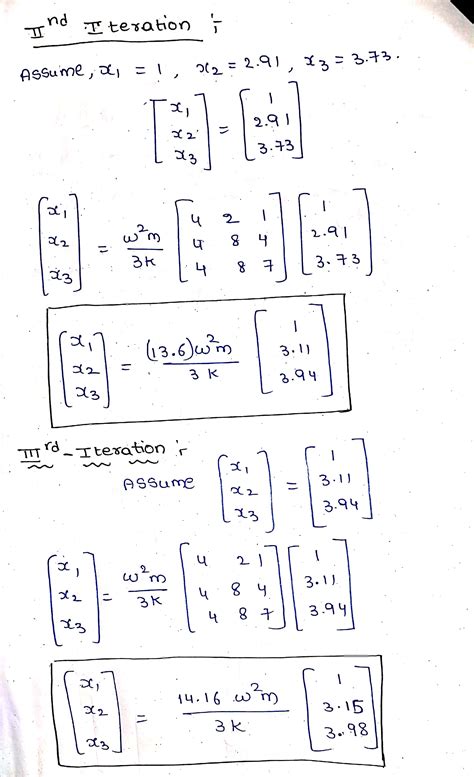 IInd Iteration :-
Assume, x1 = 1, x2 = 2.91, x3 = 3.73.
[x1 x2 x3] = [1 2.91 3.73]
[x1 x2 x3] = ω²m/3K [4 2 1 4 8 4 4 8 7] [1 2.91 3.73]
[x1 x2 x3] = (13.6)ω²m/3K [1 3.11 3.94]
IIIrd - Iteration :-
Assume [x1 x2 x3] = [1 3.11 3.94]
[x1 x2 x3] = ω²m/3K [4 2 1 4 8 4 4 8 7] [1 3.11 3.94]
[x1 x2 x3] = 14.16 ω²m/3K [1 3.15 3.98]